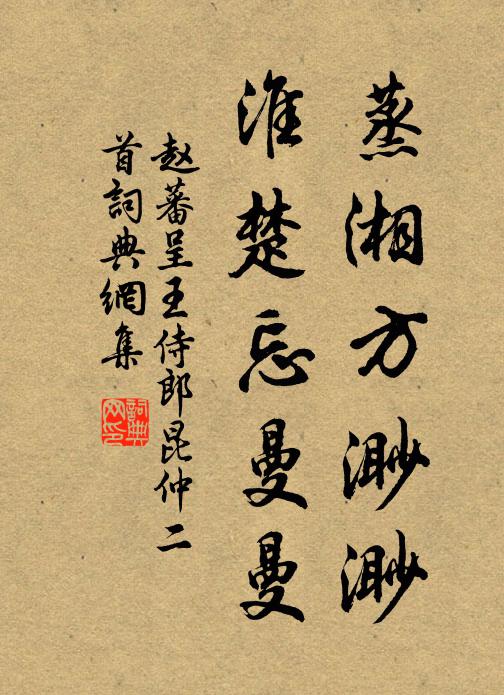 蒸湘方渺渺
淮楚忘曼曼
赵蕃呈王侍郎昆仲二
首詞典網集
詞典
网印